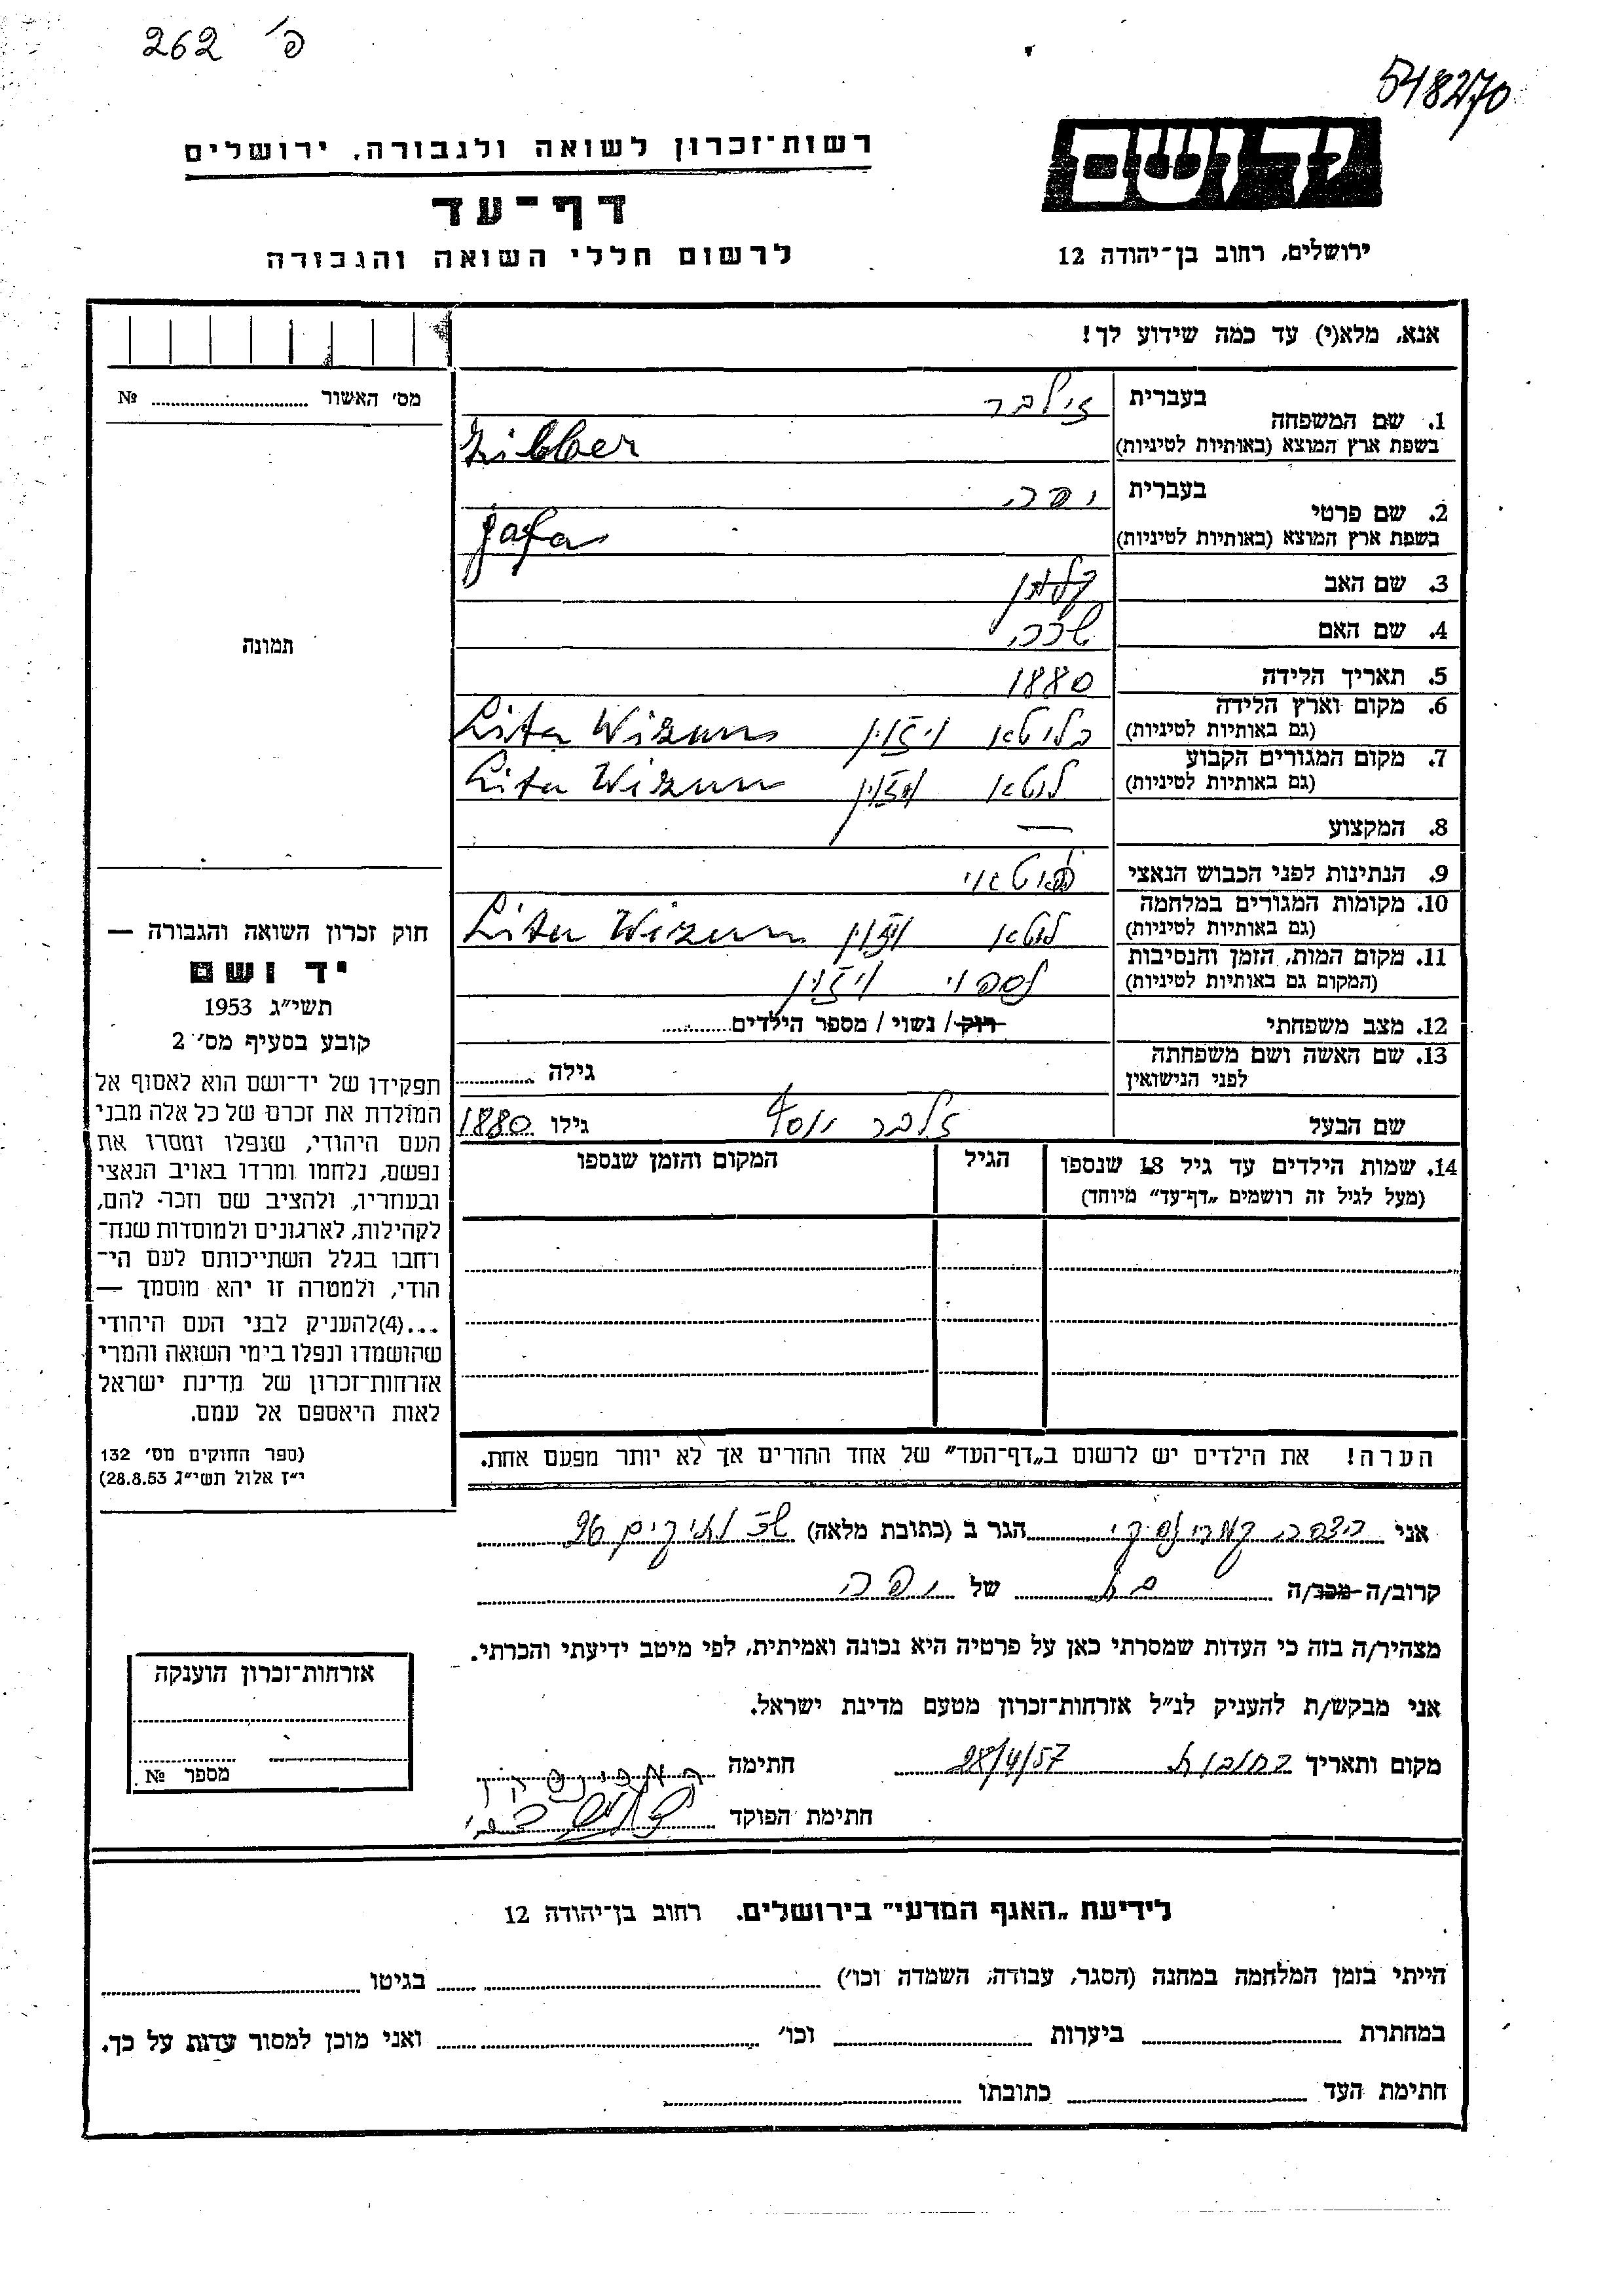 262 פ׳
548270
רשות־זכרון לשואה ולגבורה, ירושלים
יד ושם
דף־עד
לרשום חללי השואה והגבורה
ירושלים, רחוב בן־יהודה 12
אנא, מלא(י) עד כמה שידוע לך!
מס׳ האשור № 
1. שם המשפחה בעברית זילבר
בשפת ארץ המוצא (באותיות לטיניות) Zilber
2. שם פרטי בעברית יפה
בשפת ארץ המוצא (באותיות לטיניות) Jafa
3. שם האב קלמן
4. שם האם שרה
5. תאריך הלידה 1880
6. מקום וארץ הלידה
(גם באותיות לטיניות) בליטא ויזון Lita Wizun
7. מקום המגורים הקבוע
(גם באותיות לטיניות) ליטא ויזון Lita Wizun
8. המקצוע —
9. הנתינות לפני הכבוש הנאצי ליטאי
10. מקומות המגורים במלחמה
(גם באותיות לטיניות) ליטא ויזון Lita Wizun
11. מקום המות, הזמן והנסיבות
(המקום גם באותיות לטיניות) ויזון
12. מצב משפחתי רוק / נשוי / מספר הילדים
13. שם האשה ושם משפחתה
לפני הנישואין גילה
שם הבעל זילבר יוסף גילו 1880
14. שמות הילדים עד גיל 18 שנספו הגיל המקום והזמן שנספו
(מעל לגיל זה רושמים „דף־עד” מיוחד)
הערה! את הילדים יש לרשום ב„דף־העד” של אחד ההורים אך לא יותר מפעם אחת.
תמונה
חוק זכרון השואה והגבורה —
יד ושם
תשי״ג 1953
קובע בסעיף מס׳ 2
תפקידו של יד־ושם הוא לאסוף אל
המולדת את זכרם של כל אלה מבני
העם היהודי, שנפלו ומסרו את
נפשם, נלחמו ומרדו באויב הנאצי
ובעוזריו, ולהציב שם וזכר להם,
לקהילות, לארגונים ולמוסדות שנח־
רחבו בגלל השתייכותם לעם הי־
הודי, ולמטרה זו יהא מוסמך —
...(4)להעניק לבני העם היהודי
שהושמדו ונפלו בימי השואה והמרי
אזרחות־זכרון של מדינת ישראל
לאות היאספם אל עמם.
(ספר החוקים מס׳ 132
י״ז אלול תשי״ג 28.8.53)
אני הגר ב (כתובת מלאה) 26
קרוב/ה מכר/ה בת של יפה
מצהיר/ה בזה כי העדות שמסרתי כאן על פרטיה היא נכונה ואמיתית, לפי מיטב ידיעתי והכרתי.
אני מבקש/ת להעניק לנ״ל אזרחות־זכרון מטעם מדינת ישראל.
מקום ותאריך רחובות 28/4/57 חתימה
חתימת הפוקד
אזרחות־זכרון הוענקה
מספר №
לידיעת „האגף המדעי” בירושלים. רחוב בן־יהודה 12
הייתי בזמן המלחמה במחנה (הסגר, עבודה, השמדה וכו׳) בגיטו
במחתרת ביערות וכו׳ ואני מוכן למסור עדות על כך.
חתימת העד כתובתו